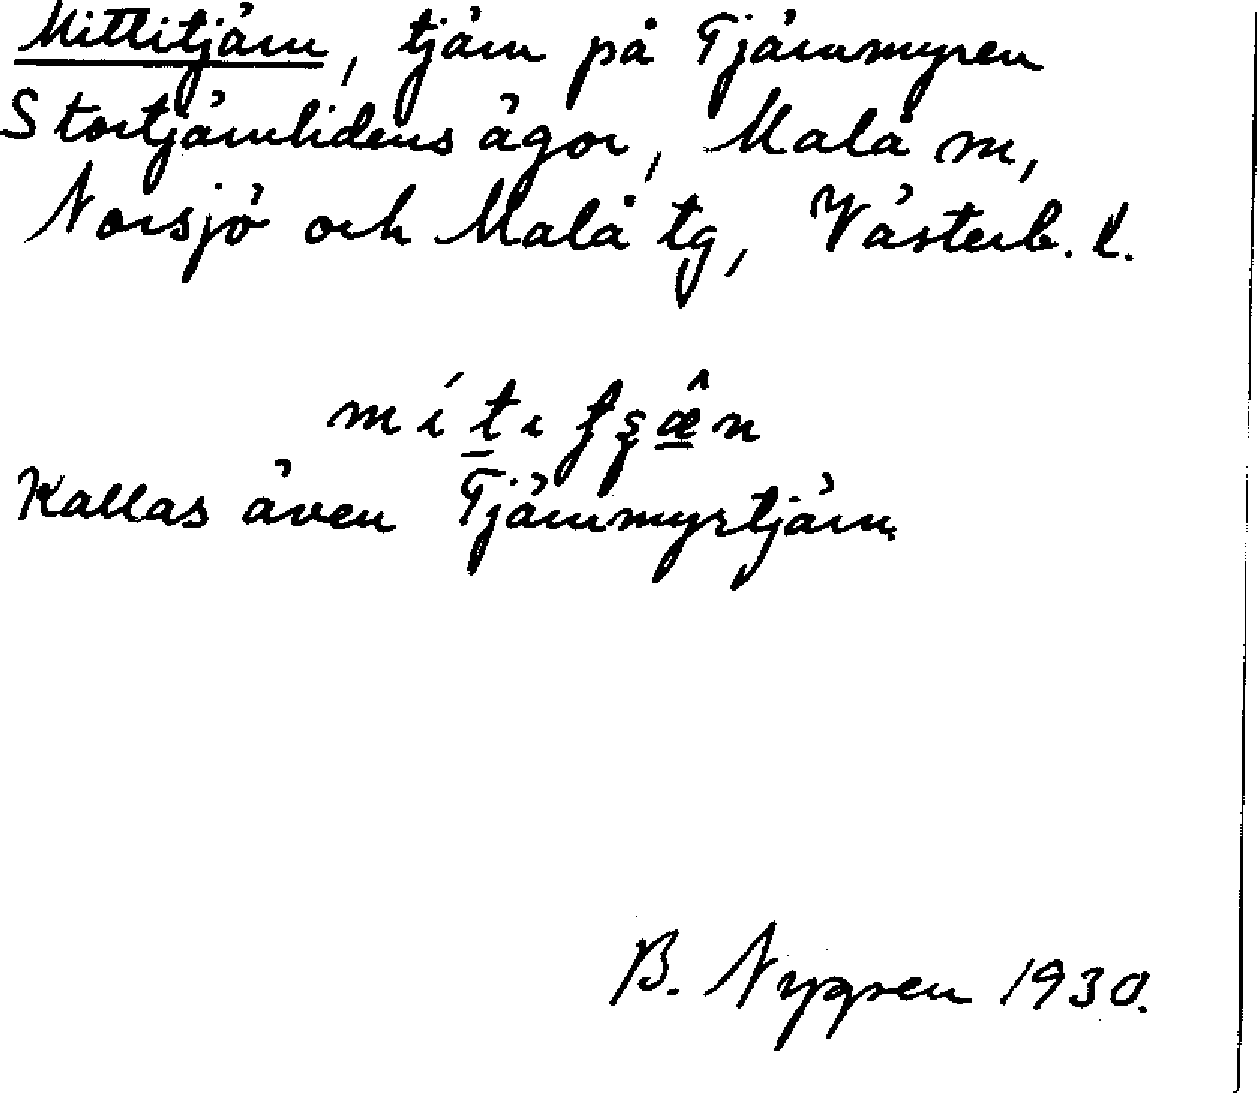 Mittitjärn, tjärn på Tjärnmyren
Stortjärnlidens ägor, Malå sn,
Norsjö och Malå tg, Västerb. l.
mítıfʂæ̂n
Kallas även Tjärnmyrtjärn.
B. Nygren 1930.